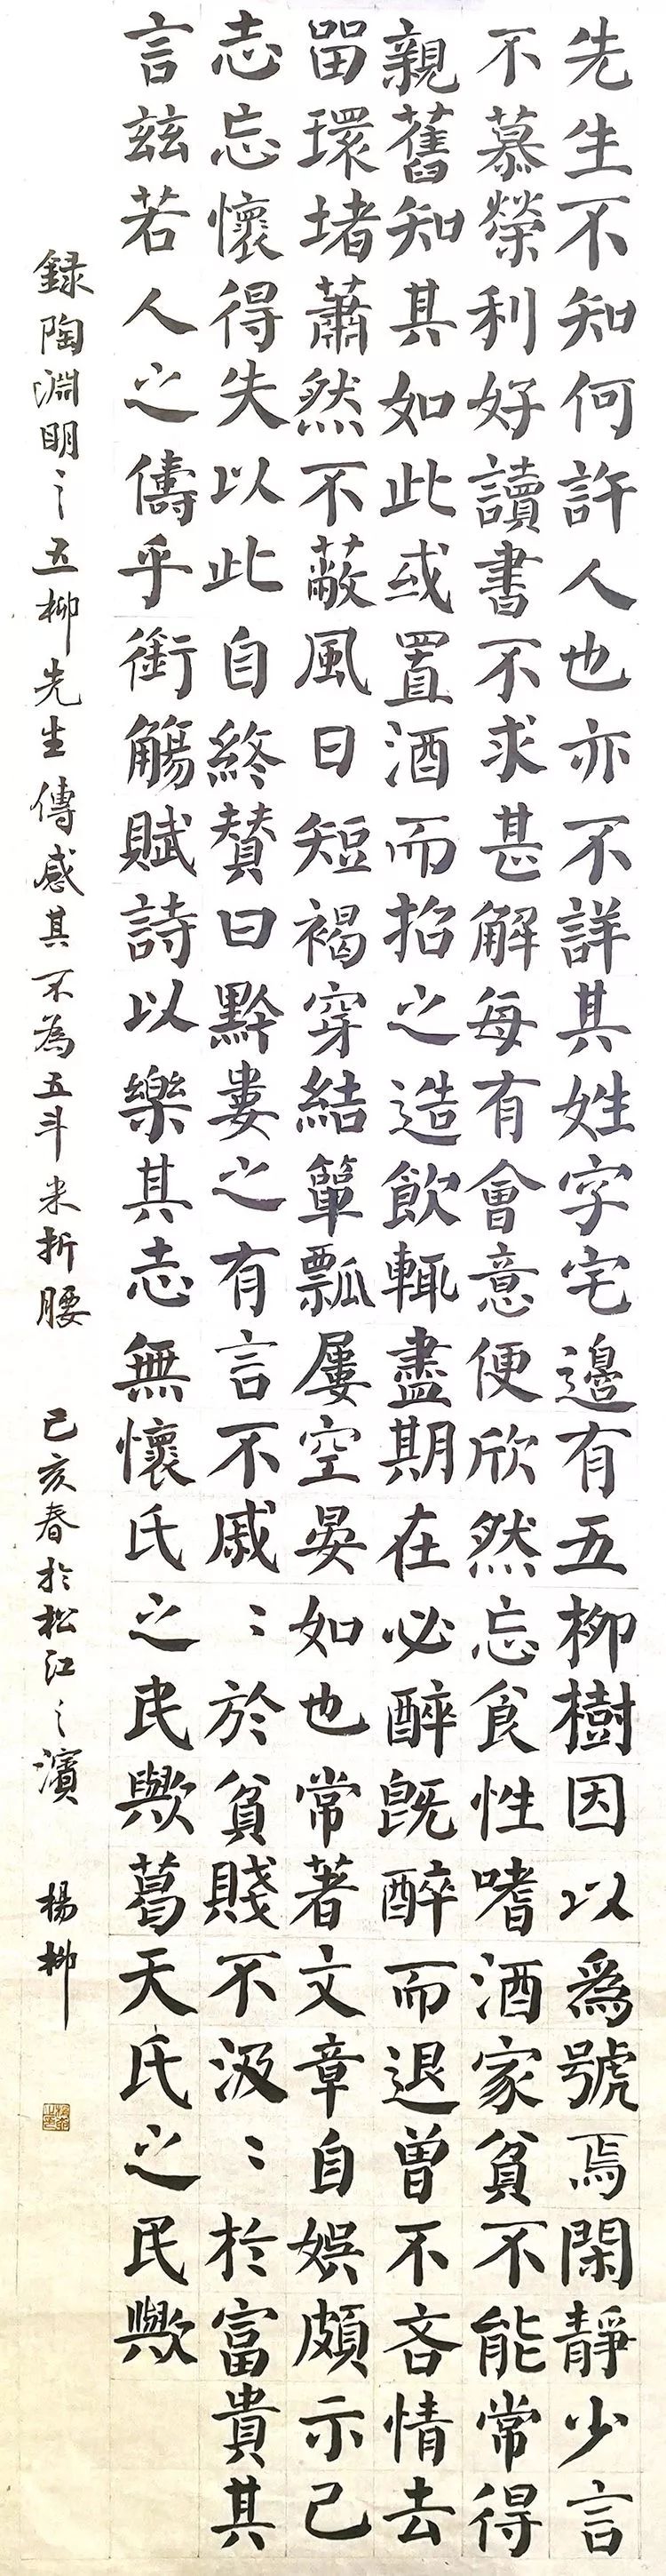 先生不知何許人也亦不詳其姓字宅邊有五柳樹因以爲號焉閑靜少言
不慕榮利好讀書不求甚解每有會意便欣然忘食性嗜酒家貧不能常得
親舊知其如此或置酒而招之造飲輒盡期在必醉既醉而退曾不吝情去
留環堵蕭然不蔽風日短褐穿結簞瓢屢空晏如也常著文章自娛頗示己
志忘懷得失以此自終贊曰黔婁之有言不戚〻於貧賤不汲〻於富貴其
言茲若人之儔乎銜觴賦詩以樂其志無懷氏之民歟葛天氏之民歟
録陶淵明之五柳先生傳感其不為五斗米折腰 己亥春於松江之濱 楊柳